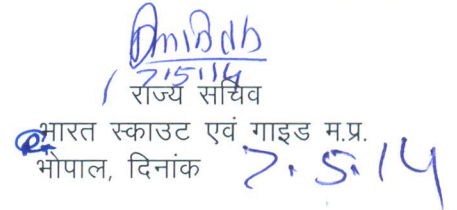 7.5.14
राज्य सचिव
भारत स्काउट एवं गाइड म.प्र.
भोपाल, दिनांक 7.5.14